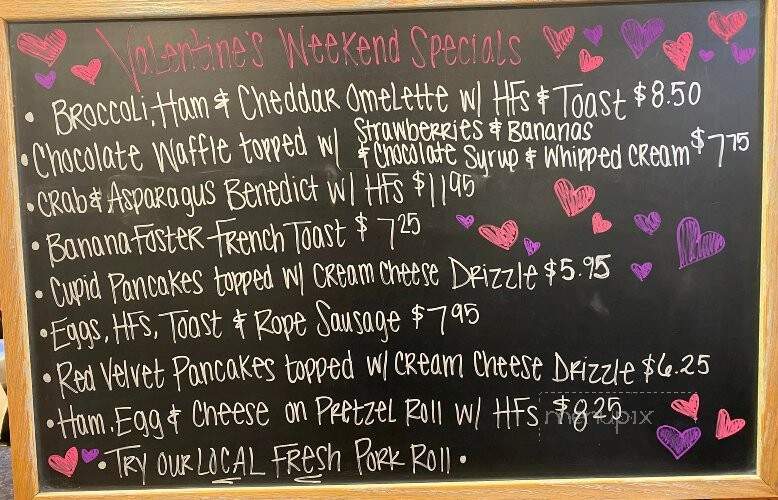 Valentine's Weekend Specials
• Broccoli, Ham & Cheddar Omelette w/ HFs & Toast $8.50
• Chocolate Waffle topped w/ Strawberries & Bananas
& Chocolate Syrup & Whipped Cream $7.75
• Crab & Asparagus Benedict w/ HFs $11.95
• Banana Foster French Toast $7.25
• Cupid Pancakes topped w/ Cream Cheese Drizzle $5.95
• Eggs, HFs, Toast & Rope Sausage $7.95
• Red Velvet Pancakes topped w/ Cream Cheese Drizzle $6.25
• Ham, Egg & Cheese on Pretzel Roll w/ HFs $8.25
menupix
• Try our LOCAL Fresh Pork Roll •